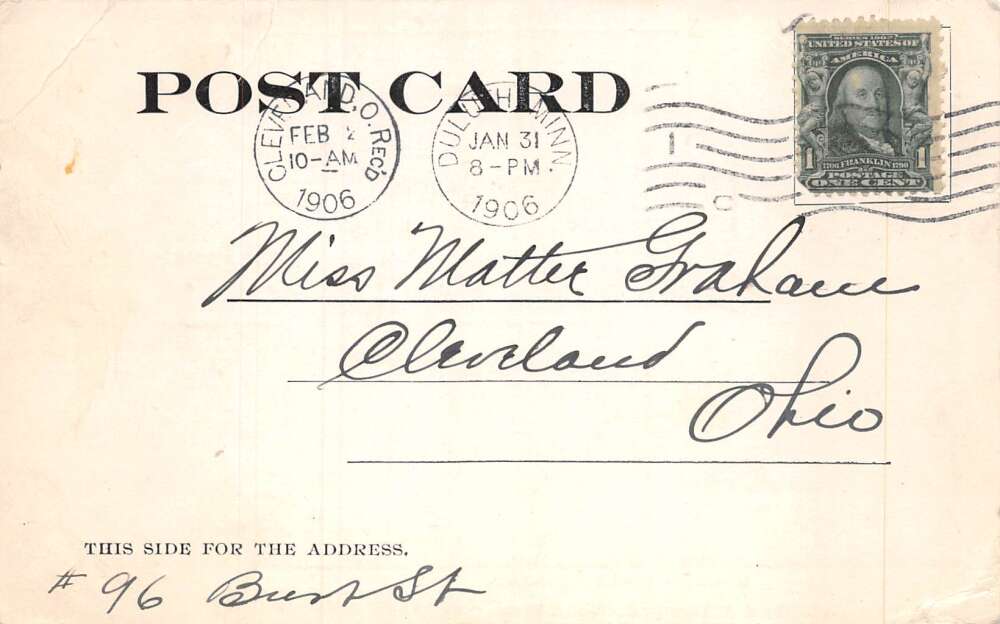 POST CARD
CLEVELAND, O. REC'D
FEB 2
10-AM
1906
DULUTH, MINN.
JAN 31
8-PM
1906
1
SERIES 1902
UNITED STATES OF
AMERICA
1706 FRANKLIN 1790
1 1
POSTAGE
ONE CENT
Miss Mattie Graham
Cleveland
Ohio
THIS SIDE FOR THE ADDRESS.
# 96 Burt St